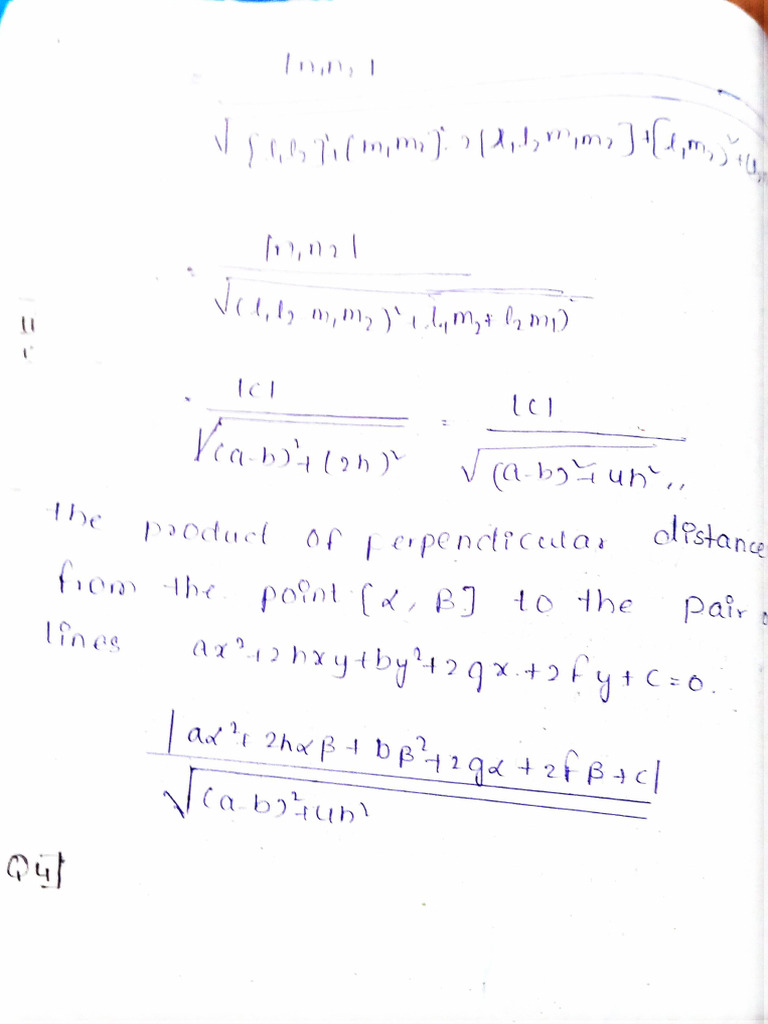 |n₁n₂|
√[(l₁l₂)²+(m₁m₂)²-2(l₁l₂m₁m₂]+[(l₁m₂)²+(l₂
|n₁n₂|
√(l₁l₂ m₁m₂)²+(l₁m₂+l₂m₁)²
|c| / √(a-b)²+(2h)² = |c| / √(a-b)²+4h² ,,
the product of perpendicular distance
from the point [α, β] to the pair
lines ax²+2hxy+by²+2gx+2fy+c=0.
|aα²+2hαβ+bβ²+2gα+2fβ+c|
√(a-b)²+4h²
Q4]